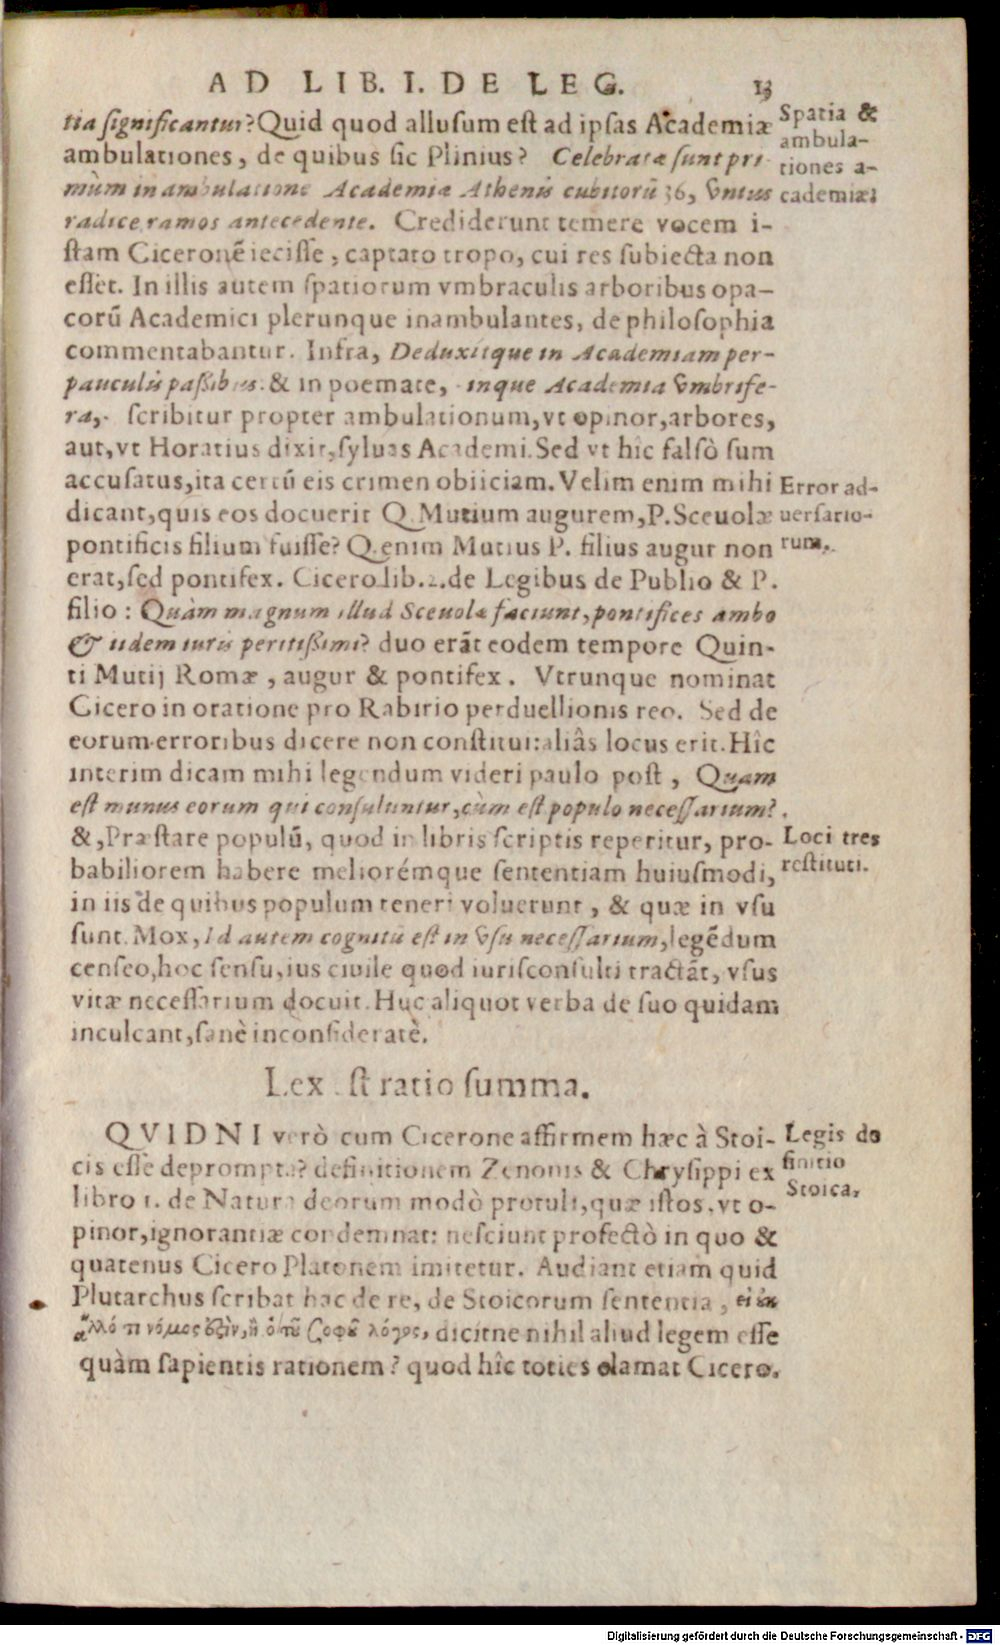 AD LIB. I. DE LEG. 13
tia significantur? Quid quod allusum est ad ipsas Academiæ
ambulationes, de quibus sic Plinius? Celebratæ sunt pri-
mùm in ambulatione Academiæ Athenis cubitorũ 36, vnius
radice ramos antecedente. Crediderunt temere vocem i-
stam Ciceronẽ iecisse, captato tropo, cui res subiecta non
esset. In illis autem spatiorum vmbraculis arboribus opa-
corũ Academici plerunque inambulantes, de philosophia
commentabantur. Infra, Deduxitque in Academiam per-
pauculis passibus. & in poemate, inque Academia vmbrife-
ra, scribitur propter ambulationum, vt opinor, arbores,
aut, vt Horatius dixit, syluas Academi. Sed vt hîc falsò sum
accusatus, ita certũ eis crimen obiiciam. Velim enim mihi
dicant, quis eos docuerit Q. Mutium augurem, P. Sceuolæ
pontificis filium fuisse? Q. enim Mutius P. filius augur non
erat, sed pontifex. Cicero lib. 2. de Legibus de Publio & P.
filio: Quàm magnum illud Sceuolæ faciunt, pontifices ambo
& iidem iuris peritissimi? duo erãt eodem tempore Quin-
ti Mutij Romæ, augur & pontifex. Vtrunque nominat
Cicero in oratione pro Rabirio perduellionis reo. Sed de
eorum erroribus dicere non constitui: aliâs locus erit. Hîc
interim dicam mihi legendum videri paulo post, Quam
est munus eorum qui consuluntur, cùm est populo necessarium?
&, Præstare populũ, quod in libris scriptis reperitur, pro-
babiliorem habere meliorémque sententiam huiusmodi,
in iis de quibus populum teneri voluerunt, & quæ in vsu
sunt. Mox, Id autem cognitũ est in vsu necessarium, legẽdum
censeo, hoc sensu, ius ciuile quod iurisconsulti tractãt, vsus
vitæ necessarium docuit. Huc aliquot verba de suo quidam
inculcant, sanè inconsideratè.
Lex est ratio summa.
QVIDNI verò cum Cicerone affirmem hæc à Stoi-
cis esse deprompta? definitionem Zenonis & Chrysippi ex
libro 1. de Natura deorum modò protuli, quæ istos, vt o-
pinor, ignorantiæ condemnat: nesciunt profectò in quo &
quatenus Cicero Platonem imitetur. Audiant etiam quid
Plutarchus scribat hac de re, de Stoicorum sententia, εἰ ἐκ
ἄλλό τι νόμος ἐστὶν, ἢ ὁ τοῦ σοφοῦ λόγος, dicitne nihil aliud legem esse
quàm sapientis rationem? quod hîc toties clamat Cicero.
Spatia &
ambula-
tiones a-
cademiæ.
Error ad-
uersario-
rum.
Loci tres
restituti.
Legis de
finitio
Stoica.
Digitalisierung gefördert durch die Deutsche Forschungsgemeinschaft - DFG